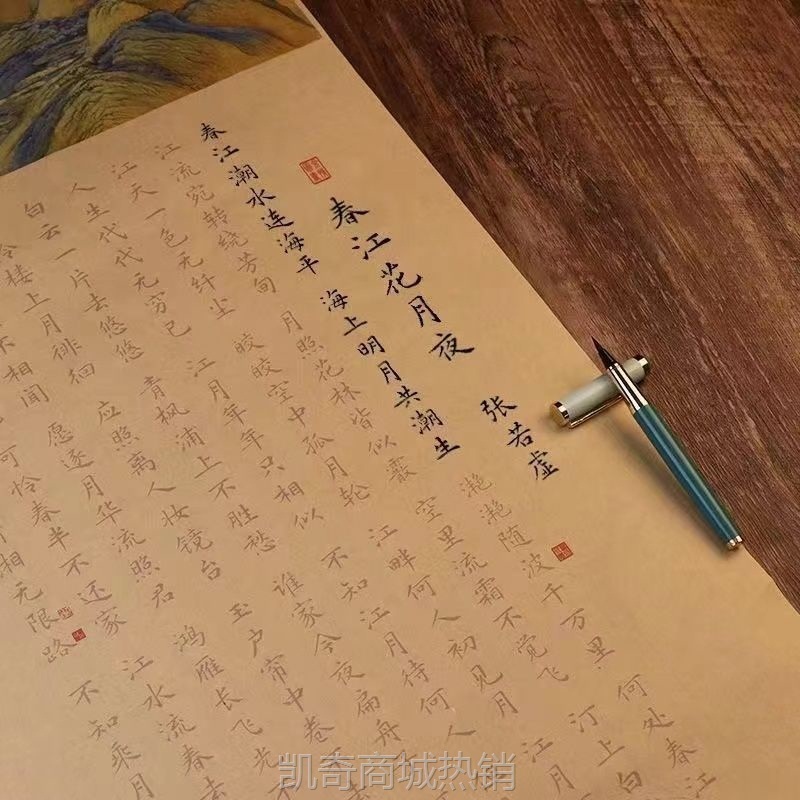 春江花月夜 张若虚
春江潮水连海平 海上明月共潮生 滟滟随波千万里 何处春江
江流宛转绕芳甸 月照花林皆似霰 空里流霜不觉飞 汀上白
江天一色无纤尘 皎皎空中孤月轮 江畔何人初见月 江月
人生代代无穷已 江月年年只相似 不知江月待何人
白云一片去悠悠 青枫浦上不胜愁 谁家今夜扁舟
怜楼上月徘徊 应照离人妆镜台 玉户帘中卷不
不相闻 愿逐月华流照君 鸿雁长飞光不
可怜春半不还家 江水流春去
湘无限路 不知乘月
凯奇商城热销